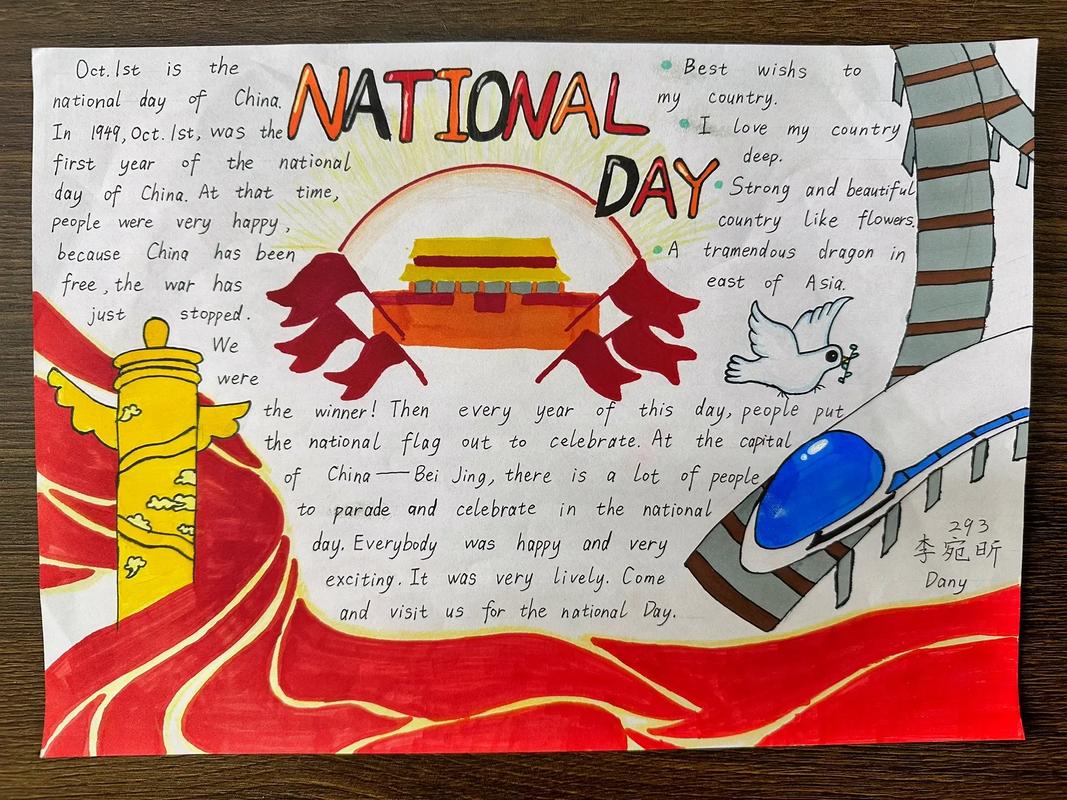 NATIONAL
DAY
Oct.1st is the
national day of China.
In 1949, Oct.1st, was the
first year of the national
day of China. At that time,
people were very happy,
because China has been
free, the war has
just stopped.
We
were
the winner! Then every year of this day, people put
the national flag out to celebrate. At the capital
of China——Bei Jing, there is a lot of people
to parade and celebrate in the national
day. Everybody was happy and very
exciting. It was very lively. Come
and visit us for the national Day.
Best wishes to
my country.
I love my country
deep.
Strong and beautiful
country like flowers.
A tramendous dragon in
east of Asia.
293
李宛昕
Dany